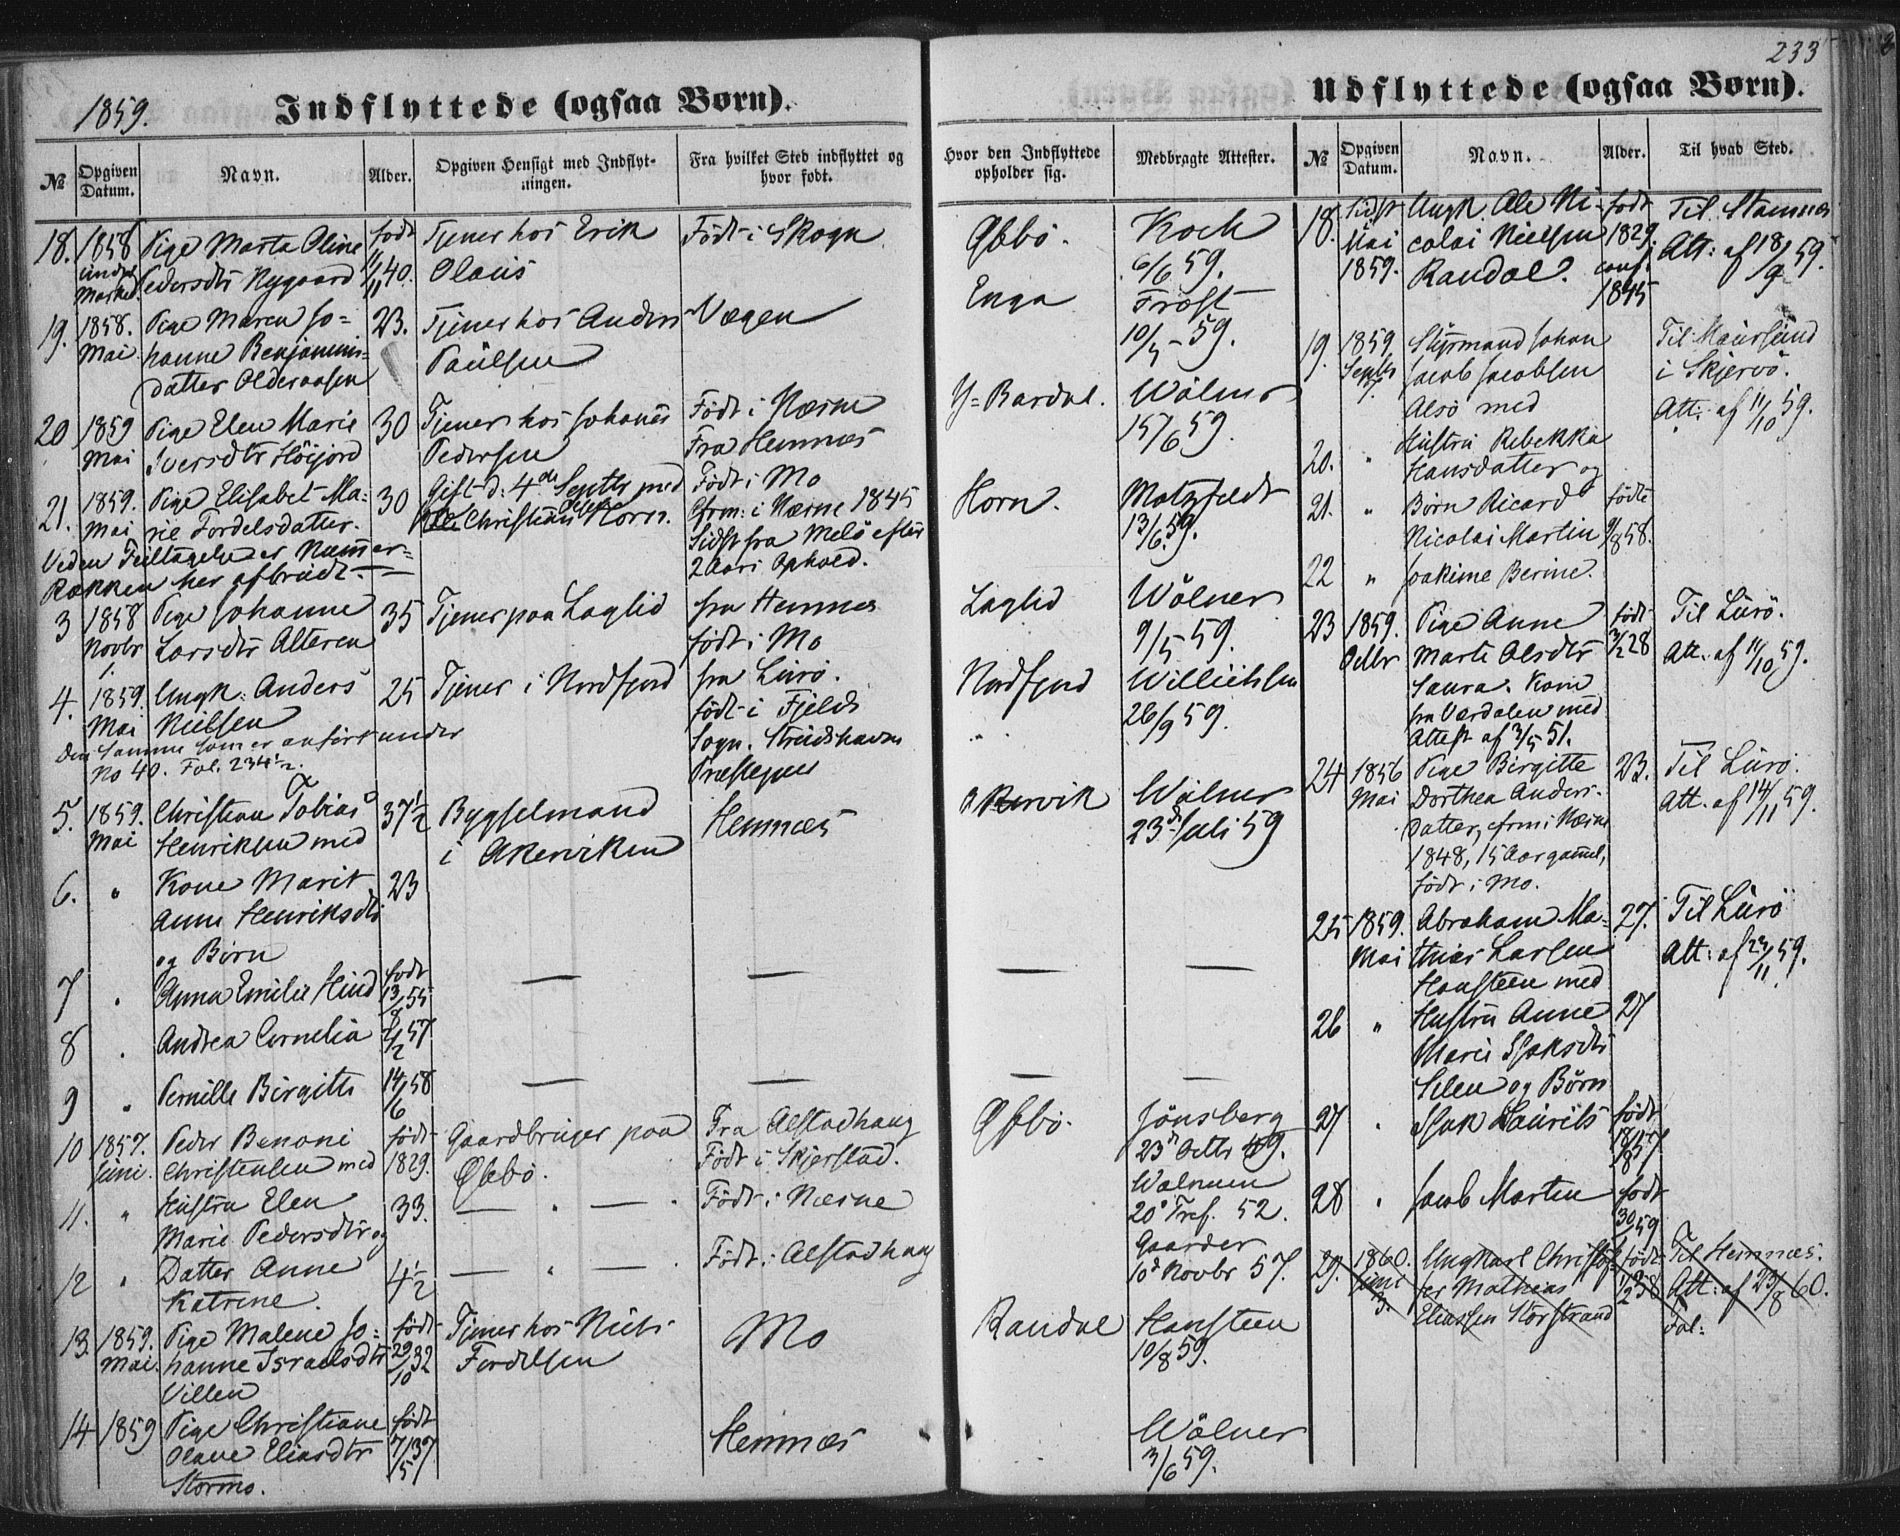 233
1859.
Indflyttede (ogsaa Børn).
Udflyttede (ogsaa Børn).
№
Opgiven Datum.
Navn.
Alder.
Opgiven Hensigt med Indflyt-
ningen.
Fra hvilket Sted indflyttet og
hvor født.
Hvor den Indflyttede
opholder sig.
Medbragte Attester.
№
Opgiven Datum.
Navn.
Alder.
Til hvad Sted.
18. 1858 Pige Marta Oline født Tjener hos Erik Født i Skogn
Pedersdtr Nygaard 40. Olaus
Koch
6/6 59.
19. 1858. Pige Maren Jo= 23. Tjener hos Anders Vægen
Mai hanne Benjamins= Paulsen
datter Olderaasen
Enga Frost
10/5 - 59.
20 1859 Pige Elen Marie 30 Tjener hos Johanes Født i Næsne
Mai Iversdtr Høijord Pedersen Fra Hemnæs
Y= Bardal. Wölner
15/6 59.
21. 1859. Pige Elisabet Ma= 30 Gift d: 4de Septbr med Født i Mo
Mai rie Fordelsdatter. Christian Horn. Cfrm: i Næsne 1845
Sidst fra Melø efter
2 Aars Ophold.
Horn. Motzfeldt
13/6 59.
Ved en Feiltagelse er Nummer=
Rækken her afbrudt.
3 1858 Pige Johanne 35 Tjener paa Laglid fra Hemnæs
Novbr Larsdtr Alteren født i Mo
1.
Laglid Wölner
9/5 59.
4. 1859. Ungk: Anders 25 Tjener i Nordfjord fra Lurø.
Mai Nielsen født i Fjelds
Sogn.
Præstegjeld
den samme som er anført under
No 40. Fol. 234 1/2.
Nordfjord
26/9 59.
5. 1859. Christian Tobias 37 1/2 Bygselmand Hemnæs
Mai Henriksen med i Akerviken
Akervik Wölner
23d Juli 59
6. " Kone Marit 23
Anne Henriksdtr
og Børn
7 " Anna Emilie Hind født
13/8 55
8 " Andrea Cornelia 2/2 57
9 " Pernille Birgitte 14/6 58
10 1857. Peder Benoni født Gaardbruger paa Fra Alstadhaug
Juni. Christensen med 1829. Født i Skjerstad.
Jönsberg
23d Octbr 49.
11. " Hustru Elen 33. Født i Næsne
Marie Pedersdtr og
20d 52.
12 " Datter Anne 4 1/2 Født i Alstadhaug
Katrine.
Gaarder
10d Novbr 57.
13. 1859. Pige Malene Jo= født Tjener hos Niels Mo
Mai. hanne Israelsdtr 29/10 32 Fordelsen
Villen
Randal Hansteen
10/8 59.
14 1859 Pige Christiane født Hemnæs
Olave Eliasdtr 7/5 37
Stormo.
Wölner
3/6 59.
18. Sidst Ungk Ole Ni= født Til Stamnæs
Mai colai Nielsen 1829. Att: af 18/9 59.
1859. Randal. conf.
1845
19. 1859 Styrmand Johan Til Maursund
Septbr Jacob Jacobsen i Skjervø.
Alsö med Att: af 11/10 59.
20. " Hustru Rebekka
Hansdatter og
21. " Børn Ricard født
Nicolai Martin 9/8 58.
22 " Joakime Berine.
23 1859. Pige Anne født Til Lurø.
Octbr Marte Olsdtr 3/2 28 Att. af 14/10 59.
Laura. Kom
fra Værdalen med
Attest af 3/5 51.
24 1856 Pige Birgitte 23. Til Lurø.
Mai Dorthea Anders= Att. af 14/11 59.
datter, cfrm i Næsne
1848, 15 Aar gammel,
født i Mo.
25 1859. Abraham Ma= 27. Til Lurø
Mai thias Larsen Att: af 23/11 59.
Hansteen med
26 " Hustru Anne 27
Marie Isaksdtr
Selen og Børn
27 " Isak Laurits født
18/8 57
28 " Jacob Martin født
30/ 59
29. 1860. Ungkarl Christof= født Til Hemnæs.
Juni fer Mathias 38 Att: af 23/8 60.
3. Eliassen Storstrand Fol: